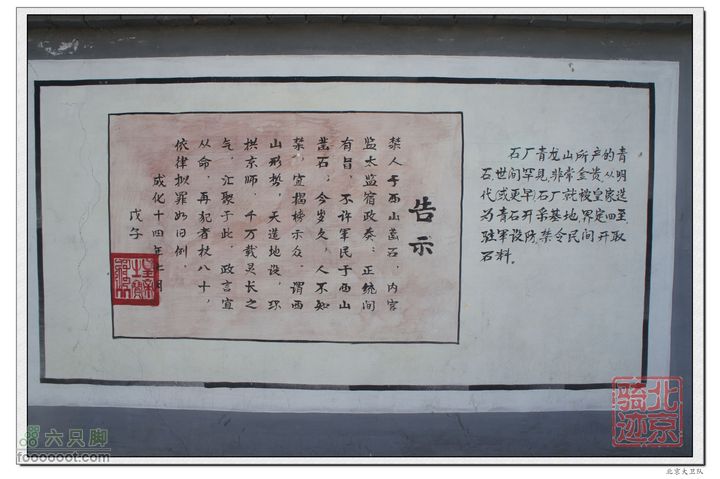 告示
禁人于西山凿石，内官
监太监宿政奏：正统间
有旨，不许军民于西山
凿石；今岁久，人不知
禁，宜揭榜示众，谓西
山形势，天造地设，环
拱京师，千万载灵长之
气，汇聚于此，政言宜
从命，再犯者杖八十，
依律拟罪如旧例，
成化十四年七月
戊午
石厂青龙山所产的青
石，世间罕见，非常金贵。从明
代(或更早)石厂就被皇家选
为青石开采基地，界定四至
驻军设防，禁令民间开取
石料。
六只脚
foooooot.com
北京
骑迹
北京大卫队